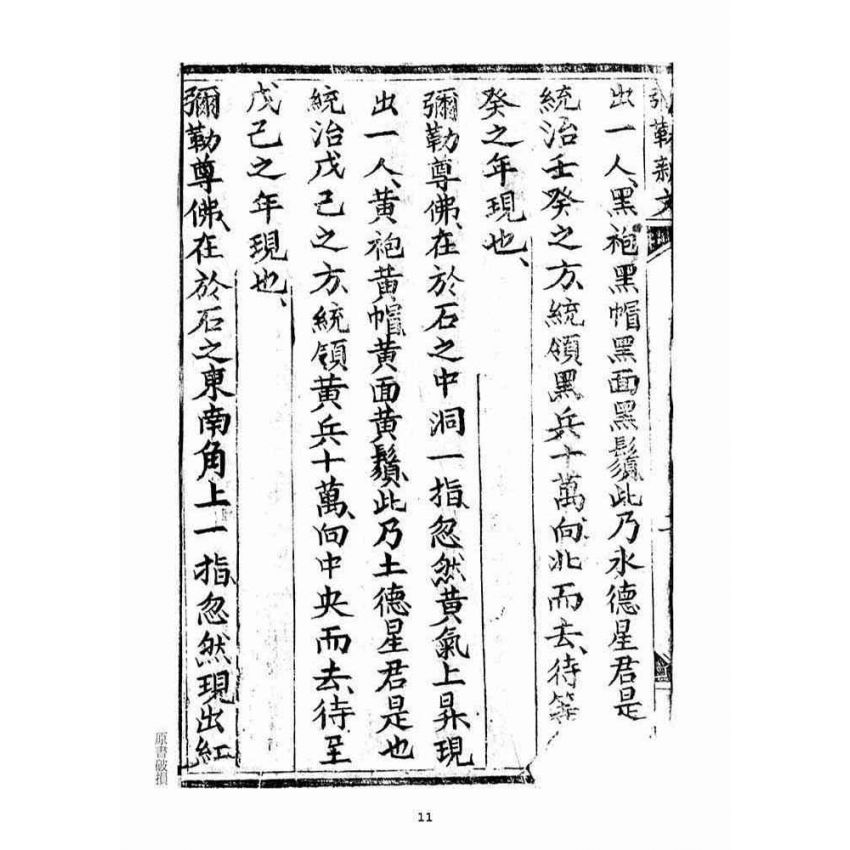 彌勒新文
出一人、黑袍黑帽黑面黑鬚此乃水德星君是
統治壬癸之方、統領黑兵十萬、向北而去、待
癸之年現也、
彌勒尊佛、在於石之中洞一指、忽然黃氣上昇現
出一人、黃袍黃帽黃面黃鬚、此乃土德星君是也
統治戊己之方、統領黃兵十萬、向中央而去、待至
戊己之年現也、
彌勒尊佛、在於石之東南角上一指、忽然現出紅
原書破損
11